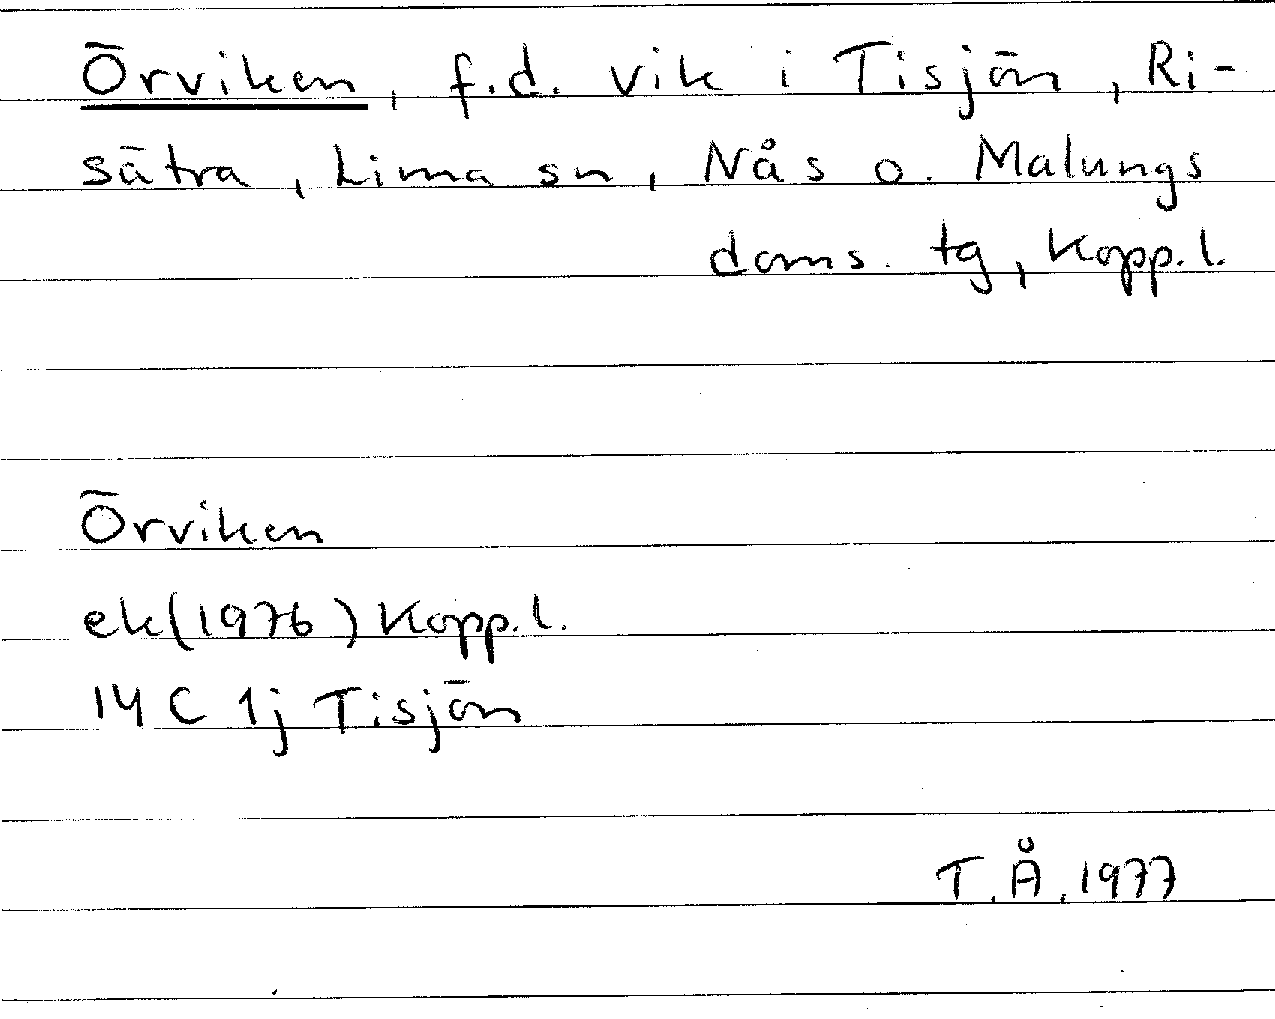 Örviken, f.d. vik i Tisjön, Ri-
sätra, Lima sn, Nås o. Malungs
doms. tg, Kopp.l.
Örviken
ek(1976) Kopp.l.
14 C 1j Tisjön
T.Å. 1977